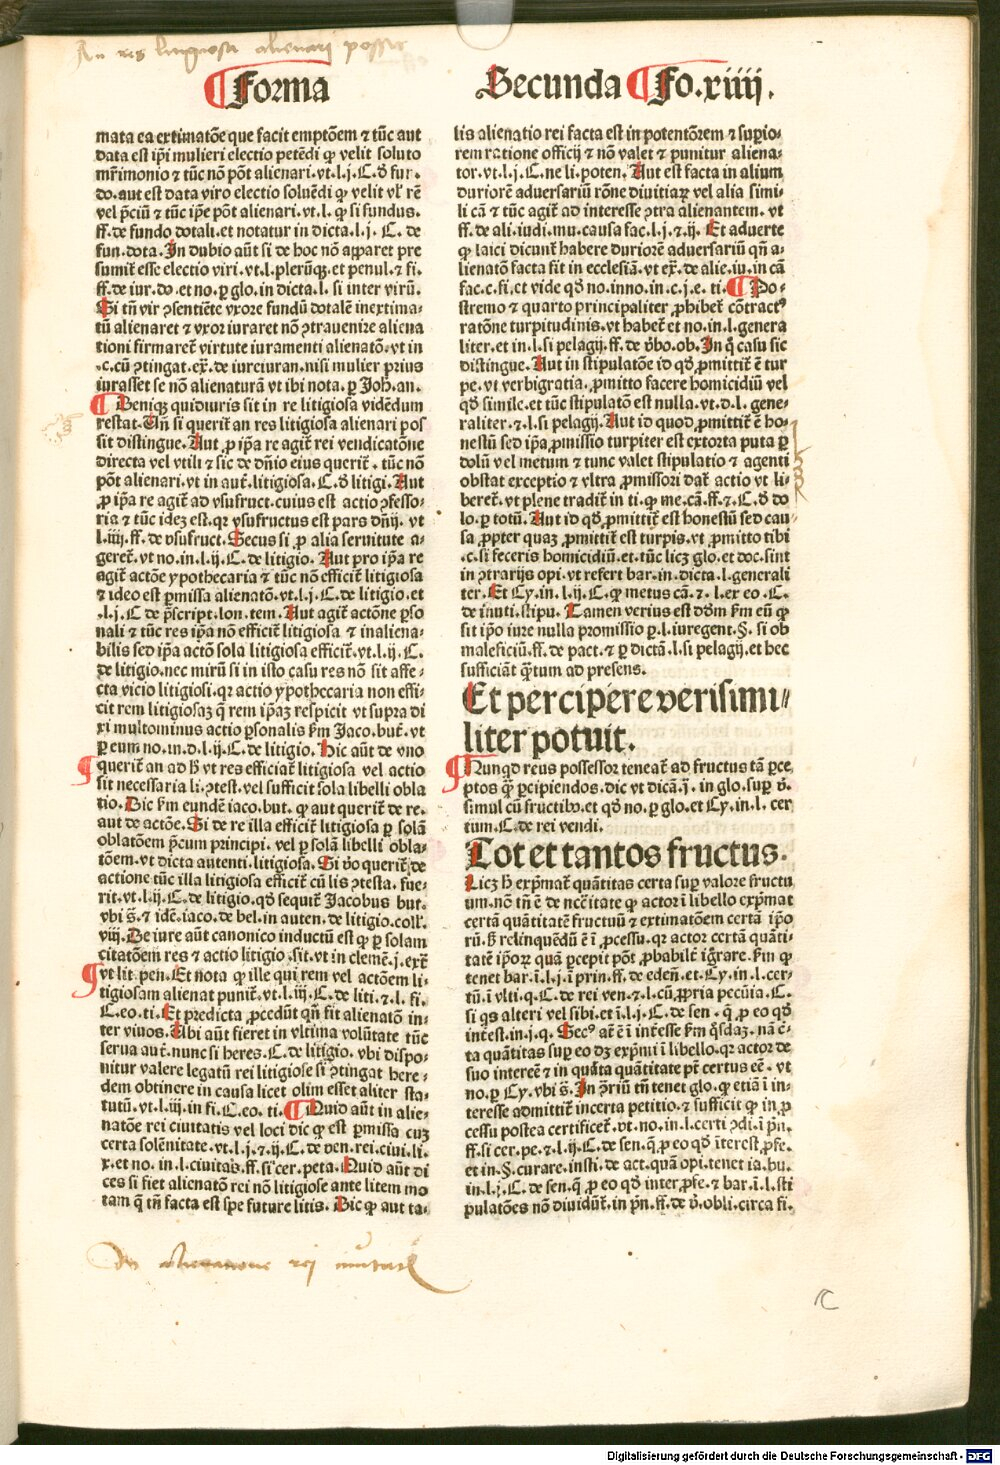 An res litigiosa alienari possit
Forma Secunda Fo.xiiij.
mata ea extimatōe que facit emptōem ⁊ tūc aut
data est ip̄i mulieri electio petēdi ꝙ velit soluto
mr̄imonio ⁊ tūc nō pōt alienari.vt.l.j.C.ð fun-
do.aut est data viro electio soluēdi ꝙ velit vl' rē
vel p̄ciū ⁊ tūc ip̄e pōt alienari.vt.l.ꝙ si fundus.
ff.de fundo dotali.et notatur in dicta.l.j. C. de
fun.dota.In dubio aūt si de hoc nō apparet pre
sumit̄ esse electio viri.vt.l.plerūqꝫ.et penul.⁊ fi.
ff.de iur.do.et no.ꝑ glo.in dicta.l. si inter virū.
Si tn̄ vir ꝯsentiēte vxore fundū dotalē inextima-
tū alienaret ⁊ vxor iuraret nō ꝯtrauenire aliena
tioni firmaret̄ virtute iuramenti alienatō.vt in
.c.cū ꝯtingat.ex̄.de iureiuran.nisi mulier prius
iurasset se nō alienaturā vt ibi nota.ꝑ Joh̄.an.
Deniqꝫ quid iuris sit in re litigiosa vidēdum
restat.Un̄ si querit̄ an res litigiosa alienari pos
sit distingue.Aut ꝓ ip̄a re agit̄ rei vendicatōne
directa vel vtili ⁊ sic de dn̄io eius querit̄ . tūc nō
pōt alienari.vt in aut̄.litigiosa.C.ð litigi.Aut
ꝓ ip̄a re agit̄ ad vsufruct̄.cuius est actio ꝯfesso-
ria ⁊ tūc idez est.qꝛ vsufructus est pars dn̄ij. vt
l.iiij.ff.de vsufruct̄.Secus si ꝓ alia seruitute a-
geret̄.vt no.in.l.ij.C.de litigio. Aut pro ip̄a re
agit̄ actōe ypothecaria ⁊ tūc nō efficit̄ litigiosa
⁊ ideo est ꝑmissa alienatō.vt.l.j.C.de litigio.et
.l.j.C de p̄script.lon.tem. Aut agit̄ actōne ꝑso
nali ⁊ tūc res ip̄a nō efficit̄ litigiosa ⁊ inaliena-
bilis sed ip̄a actō sola litigiosa efficit̄.vt.l.ij.C.
de litigio.nec mirū si in isto casu res nō sit affe-
cta vicio litigiosi.qꝛ actio ypothecaria non effi-
cit rem litigiosaꝫ q̄ rem ip̄aꝫ respicit vt supra di
xi multominus actio ꝑsonalis ẜm Jaco.but̄. vt
ꝑ eum no.in.d.l.ij.C.de litigio. Hic aūt de vno
querit̄ an ad h̄ vt res efficiat̄ litigiosa vel actio
sit necessaria li.ꝯtest.vel sufficit sola libelli obla
tio.Dic ẜm eundē iaco.but. ꝙ aut querit̄ de re.
aut de actōe.Si de re illa efficit̄ litigiosa ꝑ solā
oblatōem p̄cum principi. vel ꝑ solā libelli obla-
tōem.vt dicta autenti.litigiosa.Si ṽo querit̄ de
actione tūc illa litigiosa efficit̄ cū lis ꝯtesta. fue-
rit.vt.l.ij.C.de litigio.qð sequit̄ Jacobus but.
vbi s̄.⁊ idē.iaco.de bel.in auten.de litigio.coll'.
viij.De iure aūt canonico inductū est ꝙ ꝑ solam
citatōem res ⁊ actio litigio.sit.vt in clemē.j.ext̄
vt lit.pen.Et nota ꝙ ille qui rem vel actōem li-
tigiosam alienat punit̄.vt.l.iij.C.de liti.⁊ l. fi.
C.eo.ti.Et predicta ꝓcedūt qn̄ fit alienatō in-
ter viuos.Ubi aūt fieret in vltima volūtate tūc
serua aut̄.nunc si heres.C.de litigio. vbi dispo-
nitur valere legatū rei litigiose si ꝯtingat here-
dem obtinere in causa licet olim esset aliter sta-
tutū.vt.l.iij.in fi.C.eo. ti. Quid aūt in alie-
natōe rei ciuitatis vel loci dic ꝙ est ꝑmissa cuꝫ
certa solēnitate.vt.l.j.⁊.ij.C.de ven.rei.ciui.li.
x.et no.in.l.ciuitas.ff.si cer.peta.Quid aūt di
ces si fiet alienatō rei nō litigiose ante litem mo
tam q̄ tn̄ facta est spe future litis. Dic ꝙ aut ta-
lis alienatio rei facta est in potentōrem ⁊ sup̄io-
rem ratione officij ⁊ nō valet ⁊ punitur aliena-
tor.vt.l.j.C.ne li.poten. Aut est facta in alium
duriorē aduersariū rōne diuitiaꝝ vel alia simi-
li cā ⁊ tūc agit̄ ad interesse ꝯtra alienantem. vt
ff.de ali.iudi.mu.causa fac.l.j.⁊.ij. Et aduerte
ꝙ laici dicunt̄ habere duriorē aduersariū qn̄ a-
lienatō facta fit in ecclesiā.vt ex̄.de alie.iu.in cā
fac.c.fi.et vide qð no.inno.in.c.j.e. ti. Po-
stremo ⁊ quarto principaliter ꝓhibet̄ cōtractꝰ
ratōne turpitudinis.vt habet̄ et no.in.l.genera
liter.et in.l.si pelagij.ff.de v̄bo.ob.In q̄ casu sic
distingue.Aut in stipulatōe id qð ꝓmittit̄ ē tur
pe.vt verbigratia.ꝓmitto facere homicidiū vel
qð simile.et tūc stipulatō est nulla.vt.d.l. gene-
raliter.⁊.l.si pelagij.Aut id quod ꝓmittit̄ ē ho-
nestū sed ip̄a ꝓmissio turpiter est extorta puta ꝑ
dolū vel metum ⁊ tunc valet stipulatio ⁊ agenti
obstat exceptio ⁊ vltra ꝓmissori dat̄ actio vt li-
beret̄.vt plene tradit̄ in ti.ꝙ me.cā.ff.⁊.C.ð do
lo.ꝑ totū.Aut id qð ꝓmittit̄ est honestū sed cau-
sa ꝓpter quaꝫ ꝓmittit̄ est turpis.vt ꝓmitto tibi
.c.si feceris homicidiū.et.tūc licꝫ glo.et doc.sint
in ꝯtrarijs opi.vt refert bar.in.dicta.l.generali
ter.Et Cy.in.l.ij.C.ꝙ metus cā.⁊.l.ex eo.C.
de inuti.stipu. Tamen verius est dōm ẜm eū ꝙ
sit ip̄o iure nulla promissio ꝑ.l.iuregent.§. si ob
maleficiū.ff.de pact.⁊ ꝑ dictā.l.si pelagij.et hec
sufficiāt q̄tum ad presens.
Et percipere verisimi-
liter potuit.
Nunqd reus possessor teneat̄ ad fructus tā ꝑce
ptos q̄ ꝑcipiendos.dic vt dicā.j. in glo.sup̄ v̄.
simul cū fructibꝰ.et qð no.ꝑ glo.et Cy.in.l. cer
tum.C.de rei vendi.
Tot et tantos fructus.
Licꝫ h̄ exp̄mat̄ quātitas certa sup̄ valore fructu
um.nō tn̄ ē de nc̄citate ꝙ actor ī libello exp̄mat
certā quātitatē fructuū ⁊ extimatōem certā ip̄o
rū.s̄ relinquēdū ē ī ꝓcessu.qꝛ actor certā quāti-
tatē ip̄oꝝ quā ꝑcepit pōt ꝓbabilit̄ igr̄are.ẜm ꝙ
tenet bar.ī.l.j.ī prin.ff.de eden̄.et.Cy.in.l.cer-
tū.ī vlti.q.C.de rei ven.⁊.l.cū.ꝓpria pecūia.C.
si qs alteri vel sibi.et ī.l.j.C.de sen . q̄ ꝓ eo qð
int̄est.in.j.q. Secꝰ at̄ ē ī int̄esse ẜm q̄sdaꝫ.nā c̄-
ta quātitas sup̄ eo dꝫ exp̄mi ī libello.qꝛ actor de
suo intereē ⁊ in quāta quātitate pt̄ certus eē . vt
no.ꝑ Cy.vbi s̄.In ꝯ̄riū tn̄ tenet glo.ꝙ etiā ī in-
teresse admittit̄ incerta petitio.⁊ sufficit ꝙ in ꝓ
cessu postea certificet̄.vt.no.in.l.certi ꝯdi.ī p̄n.
ff.si cer.pe.⁊.l.ij.C.de sen.q̄ ꝓ eo qð īterest ꝓfe.
et in.§.curare.insti.de act.quā opi.tenet ia.bu.
in.l.j.C.de sen.q̄ ꝓ eo qð inter ꝓfe.⁊ bar.ī.l.sti
pulatōes nō diuidūt̄.in p̄n.ff.de v̄.obli.circa fi.
De alienatione rej
Digitalisierung gefördert durch die Deutsche Forschungsgemeinschaft - DFG